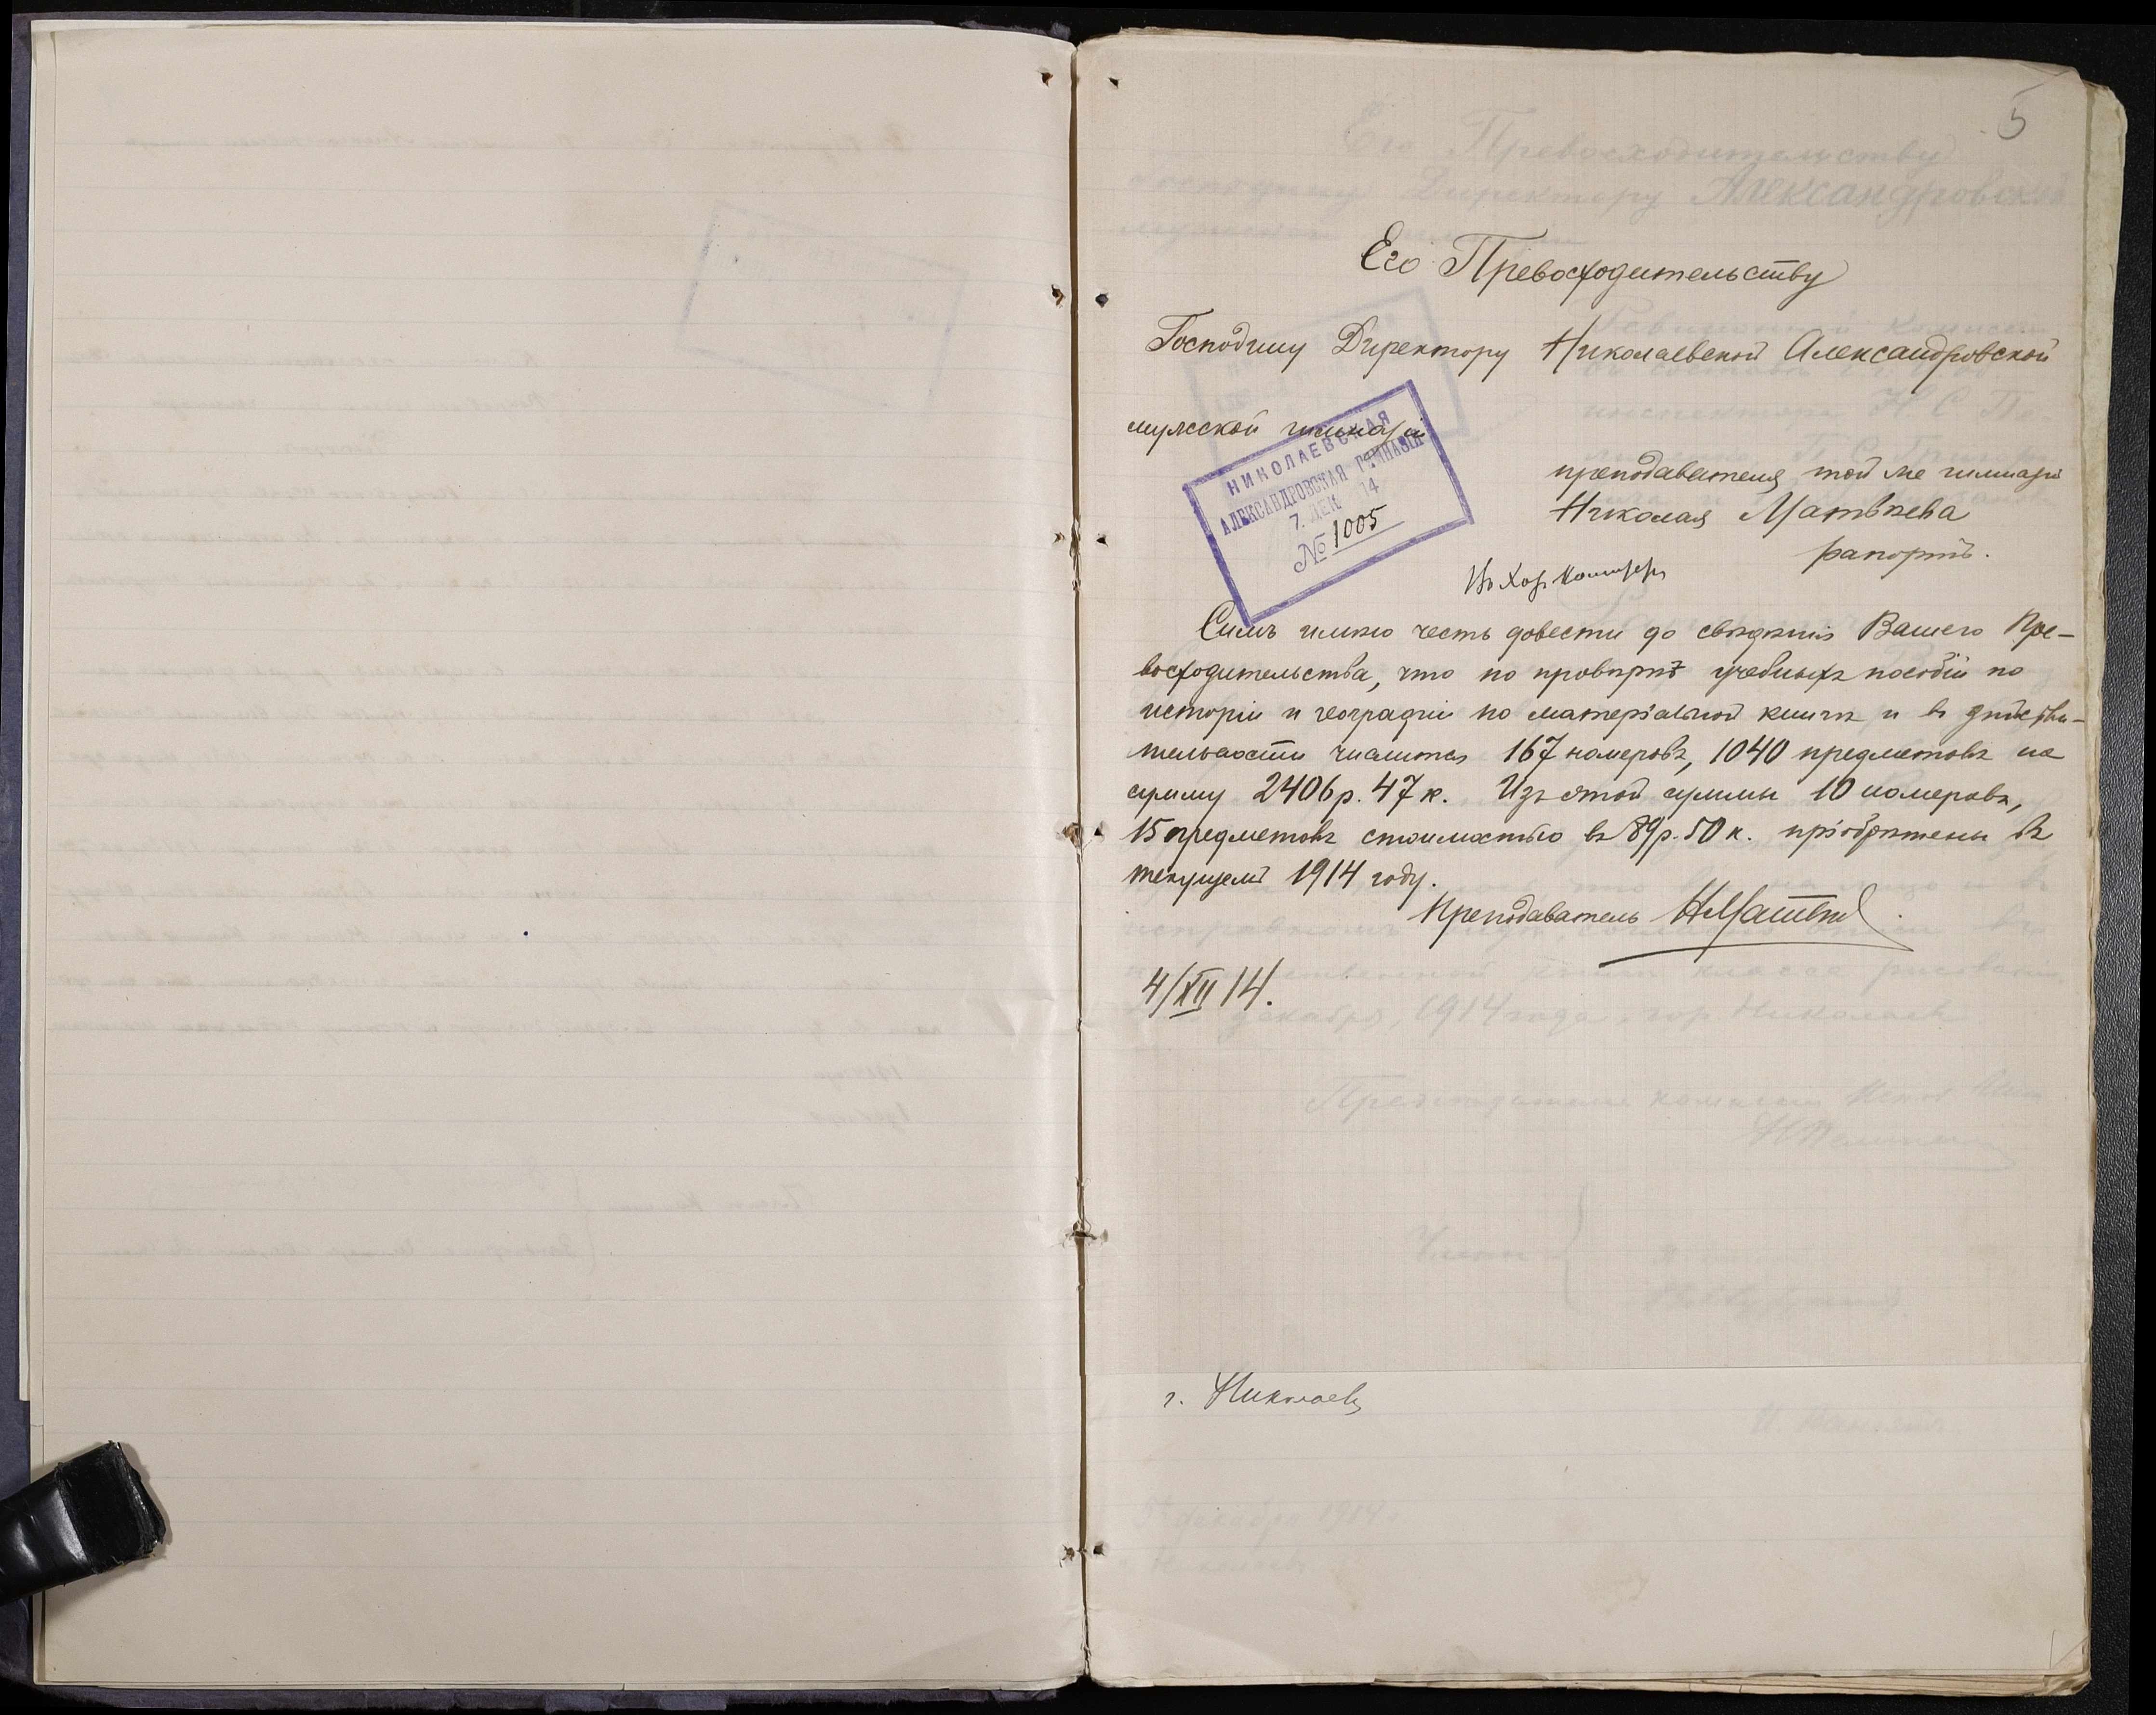 5
Его Превосходительству
Господину Директору Николаевской Александровской
мужской гимназіи
НИКОЛАЕВСКАЯ
АЛЕКСАНДРОВСКАЯ ГИМНАЗІЯ
7. ДЕК 14
№ 1005
преподавателя той же гимназіи
Николая Матвѣева
рапортъ.
Въ Хоз. Комитетъ
Симъ имѣю честь довести до свѣдѣнія Вашего Пре-
восходительства, что по провѣркѣ учебныхъ пособій по
исторіи и географіи по матеріальной книгѣ и въ дѣйстви-
тельности числится 167 номеровъ, 1040 предметовъ на
сумму 2406 р. 47 к. Изъ этой суммы 10 номеровъ,
15 предметовъ стоимостью въ 89 р. 50 к. пріобрѣтены въ
текущемъ 1914 году.
Преподаватель Н Матвѣев
4/XII 14.
г. Николаевъ